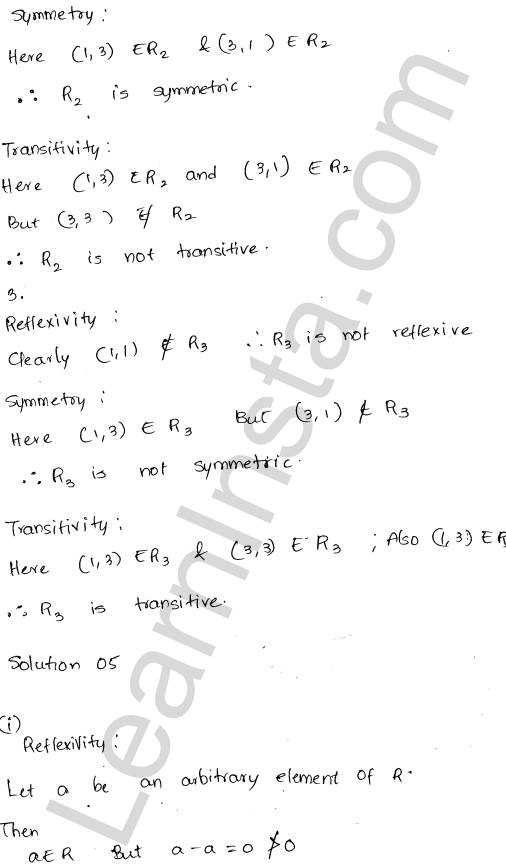 Symmetry :
Here (1,3) ∈ R₂ & (3,1) ∈ R₂
∴ R₂ is symmetric.
Transitivity :
Here (1,3) ∈ R₂ and (3,1) ∈ R₂
But (3,3) ∉ R₂
∴ R₂ is not transitive.
3.
Reflexivity :
Clearly (1,1) ∉ R₃ ∴ R₃ is not reflexive
Symmetry :
Here (1,3) ∈ R₃ But (3,1) ∉ R₃
∴ R₃ is not symmetric.
Transitivity :
Here (1,3) ∈ R₃ & (3,3) ∈ R₃ ; Also (1,3) ∈ R₃
∴ R₃ is transitive.
Solution 05
(i)
Reflexivity :
Let a be an arbitrary element of R.
Then
a ∈ R But a - a = 0 ≯ 0
LearnInsta.com